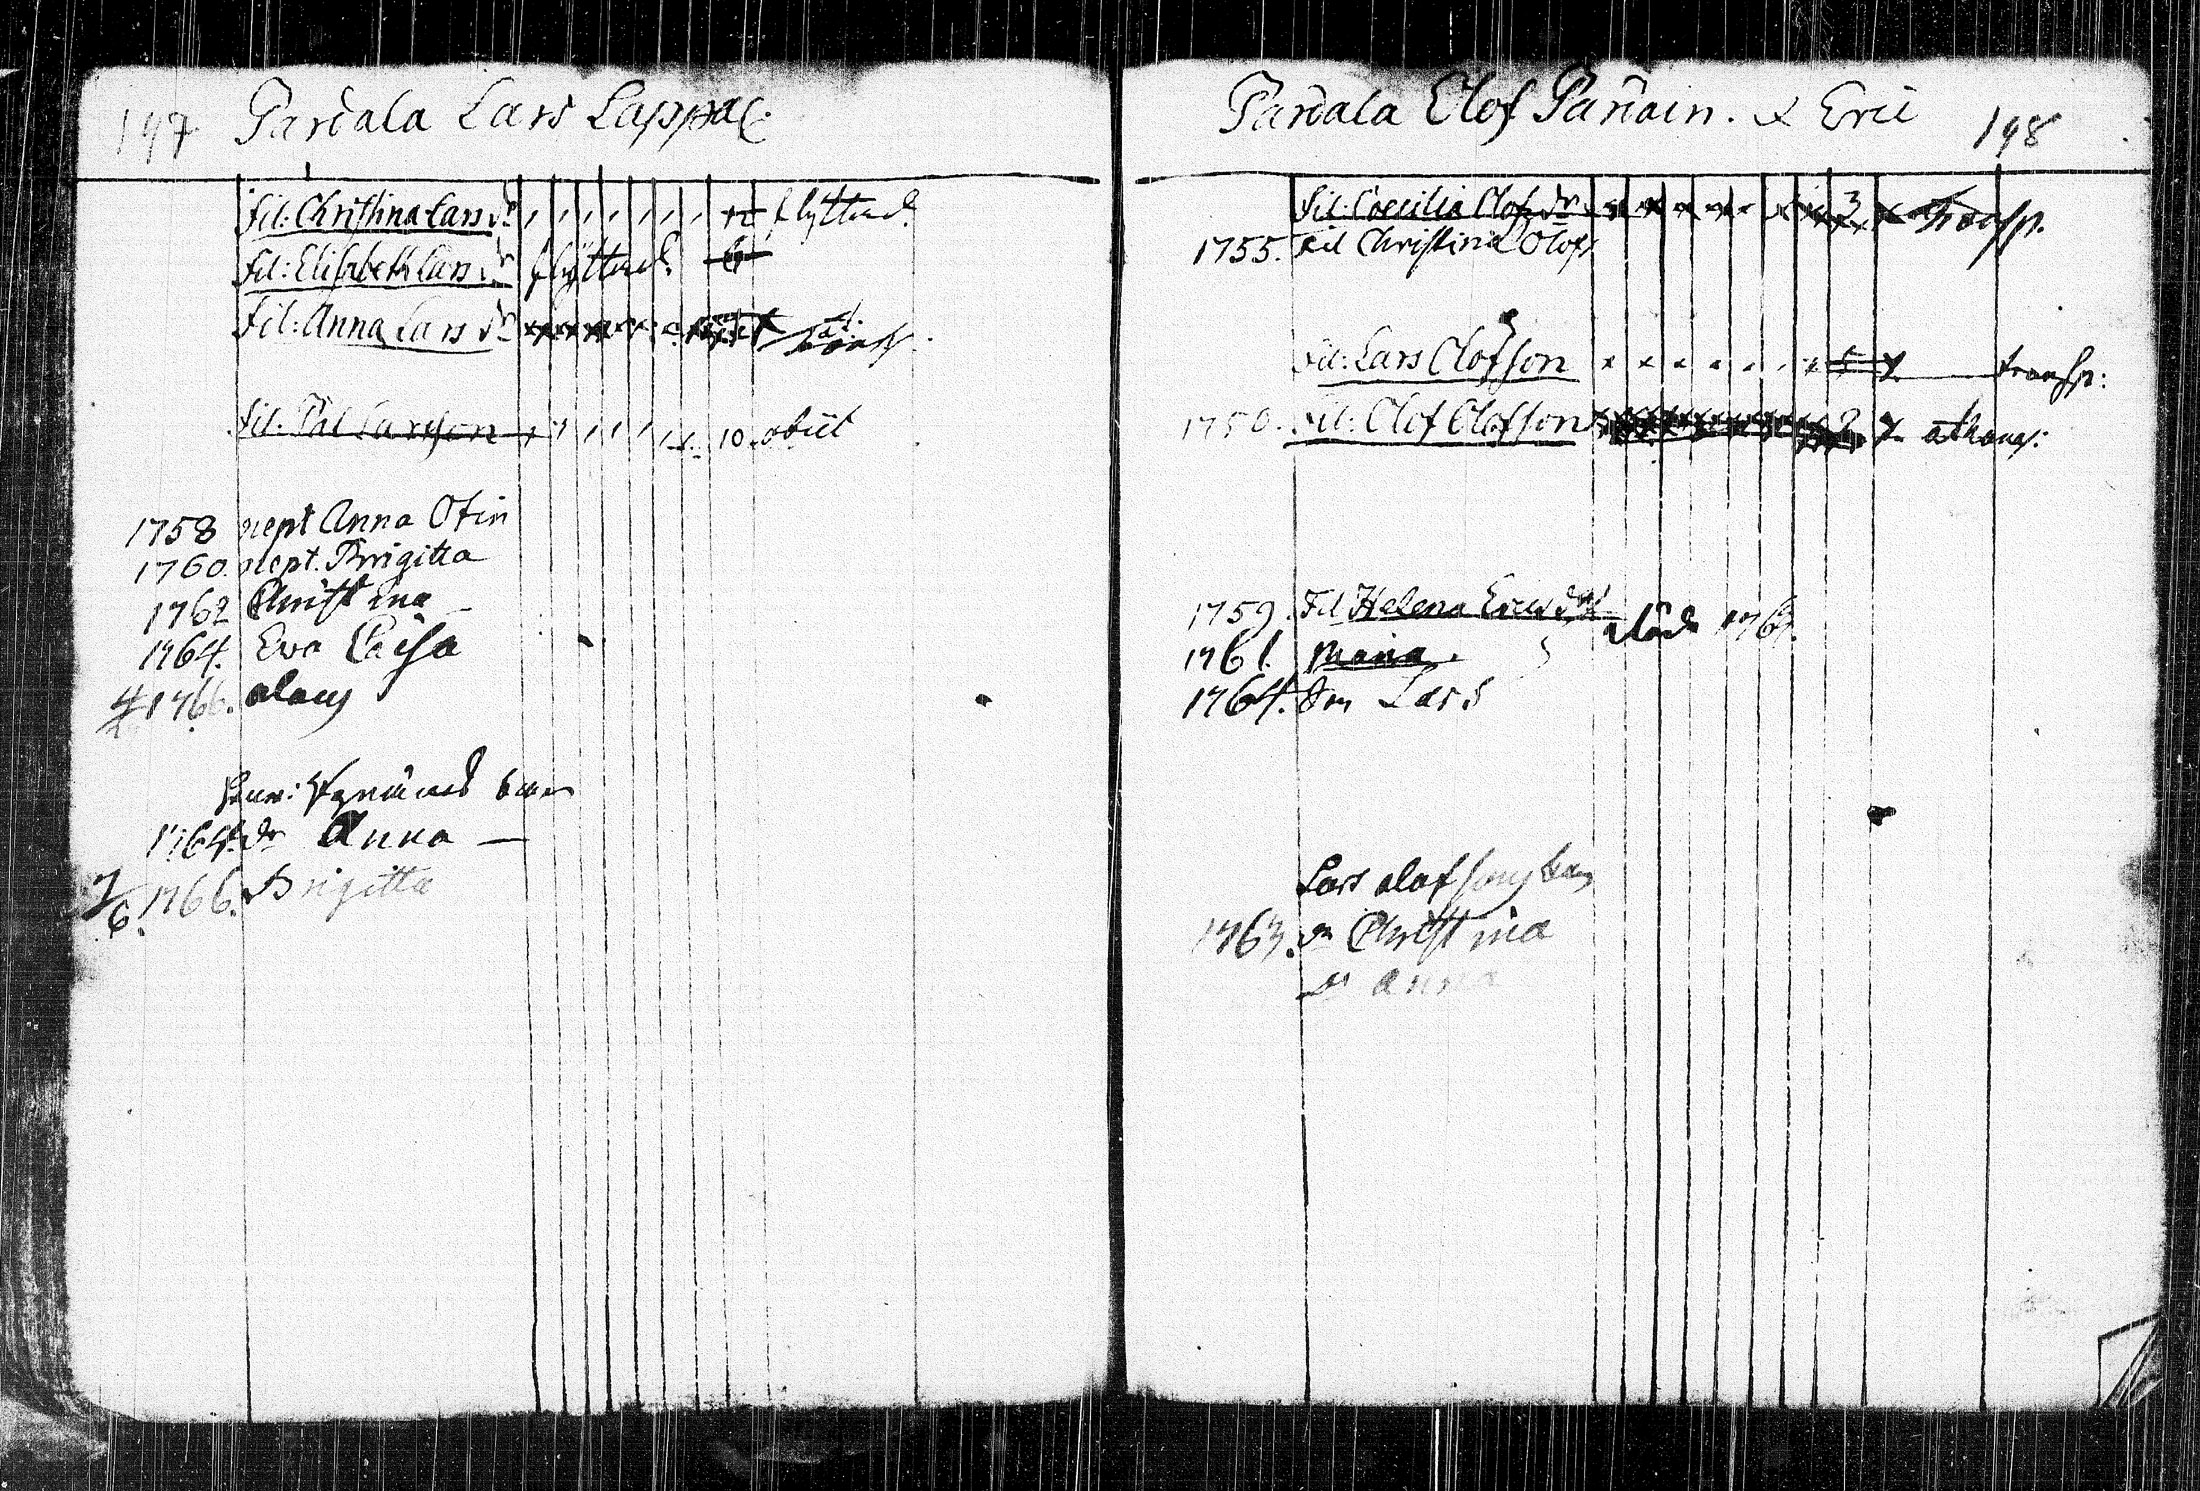 197 Pardala Lars Lappal:
Fil: Christina Lars dr 12 flyttad
Fil: Elisabeth Lars dr flyttad 6
Fil: Anna Lars dr
Fil. Pål Larsson 10 obiit
1758 nept Anna Ofin
1760. nept. Brigitta
1762 Christina
1764. Eva Caisa
1766. olaus
1764. dr Anna —
7/6. 1766. Brigitta
Pardala Olof Pardain. & Eric 198
Fil: Coecilia Olofs dr 3 transp.
1755. Fil Christina Olofs
Fil: Lars Olofson 5 transp:
1750. Fil: Olof Olofson 2
1759. Fil Helena Erics dr död 176
1761. Maria.
1764. Son Lars
Lars olofsons barn
1763. dr Christina
dr anna